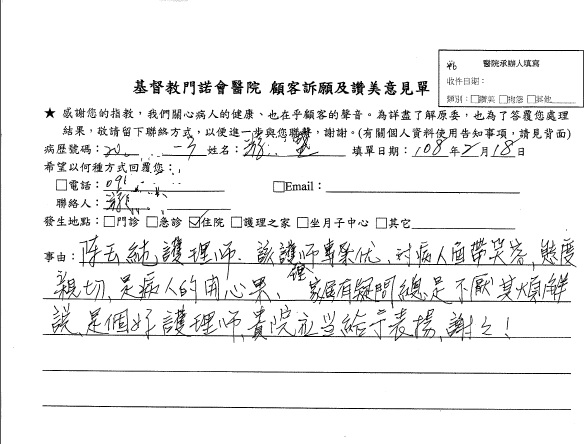 醫院承辦人填寫
收件日期：
類別：□讚美 □抱怨 □其他
基督教門諾會醫院 顧客訴願及讚美意見單
★ 感謝您的指教，我們關心病人的健康、也在乎顧客的聲音。為詳盡了解原委，也為了答覆您處理
結果，敬請留下聯絡方式，以便進一步與您聯繫，謝謝。(有關個人資料使用告知事項，請見背面)
病歷號碼： 姓名： 填單日期：108年2月18日
希望以何種方式回覆您：
□電話：091 □Email：
聯絡人：
發生地點：□門診 □急診 ☑住院 □護理之家 □坐月子中心 □其它
事由：陳玉純護理師．該護理師專業優、對病人面帶笑容，態度
親切、是病人的開心果、家屬有疑問總是不厭其煩解
說，是個好護理師，貴院應当給予表揚，謝々！